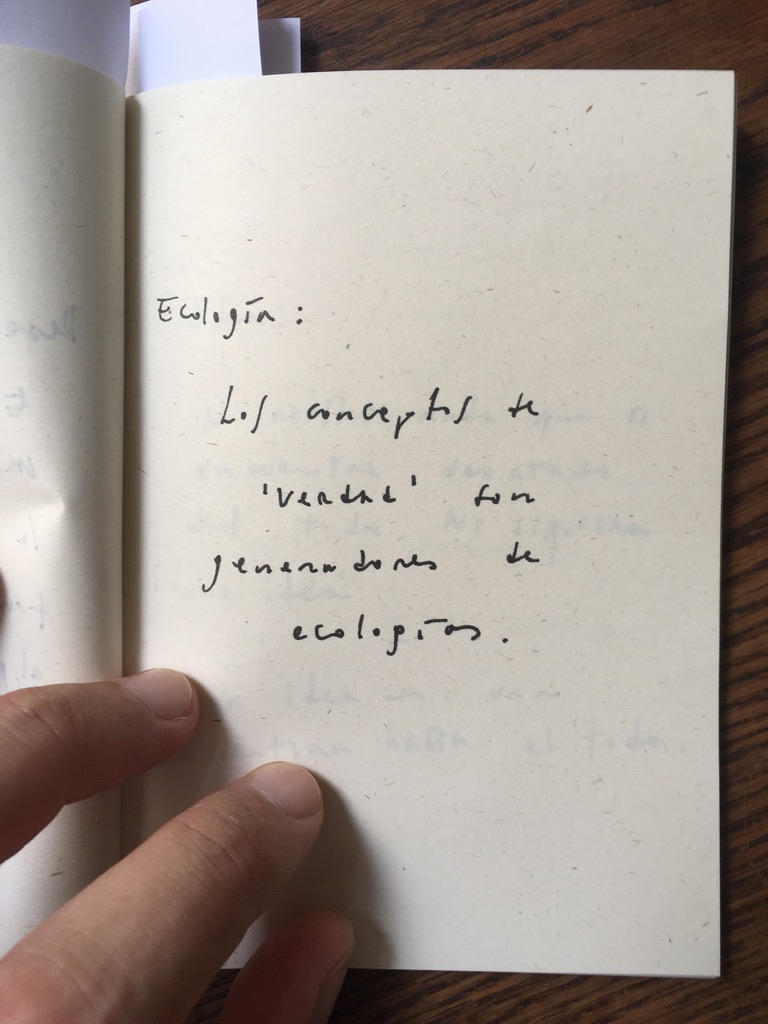 Ecología:
Los conceptos de
'verdad' son
generadores de
ecologías.